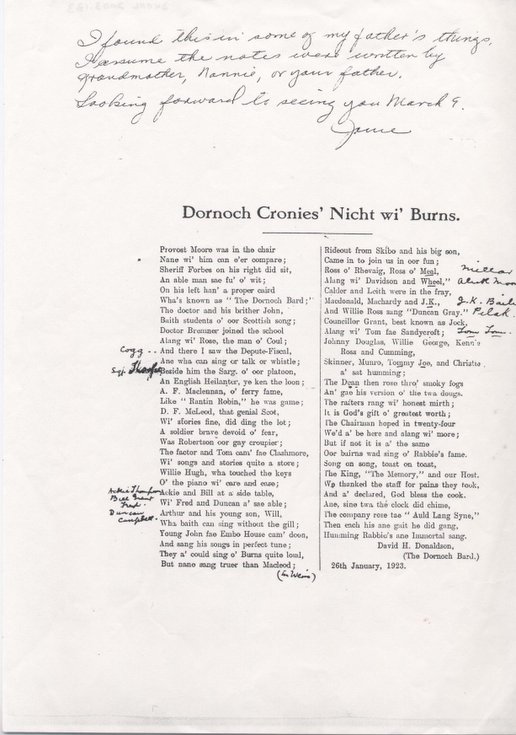 I found this in some of my father's things.
I assume the notes were written by
grandmother, Nannie, or your father.
Looking forward to seeing you March 9.
Dornoch Cronies' Nicht wi' Burns.
Provost Moore was in the chair
Nane wi' him can e'er compare;
Sheriff Forbes on his right did sit,
An able man sae fu' o' wit;
On his left han' a proper caird
Wha's known as "The Dornoch Bard;"
The doctor and his brither John,
Baith students o' oor Scottish song;
Doctor Bremner joined the school
Alang wi' Rose, the man o' Coul;
Cogg -- And there I saw the Depute-Fiscal,
Ane wha can sing or talk or whistle;
Sgt. Thompson Beside him the Sarg. o' oor platoon,
An English Heilanter, ye ken the loon;
A. F. Maclennan, o' ferry fame,
Like "Rantin Robin," he was game;
D. F. McLeod, that genial Scot,
Wi' stories fine, did ding the lot;
A soldier brave devoid o' fear,
Was Robertson oor gay croupier;
The factor and Tom cam' fae Clashmore,
Wi' songs and stories quite a store;
Willie Hugh, wha touched the keys
O' the piano wi' care and ease;
Ackie Thompson
Bill Grant
Fred
Duncan
Campbell
Ackie and Bill at a side table,
Wi' Fred and Duncan a' sae able;
Arthur and his young son, Will,
Wha baith can sing without the gill;
Young John fae Embo House cam' doon,
And sang his songs in perfect tune;
They a' could sing o' Burns quite loud,
But nane sang truer than Macleod;
Rideout from Skibo and his big son,
Came in to join us in oor fun;
Ross o' Rhevaig, Ross o' Meal, Millar
Alang wi' Davidson and Wheel,"
Calder and Leith were in the fray,
Macdonald, Machardy and J.K.,
And Willie Ross sang "Duncan Gray."
Councillor Grant, best known as Jock, Tom Tom.
Alang wi' Tom fae Sandycroft;
Johnny Douglas, Willie George, Kenn'o
Ross and Cumming,
Skinner, Munro, Tommy Joe, and Christie
a' sat humming;
The Dean then rose thro' smoky fogs
An' gae his version o' the twa dougs.
The rafters rang wi' honest mirth;
It is God's gift o' greatest worth;
The Chairman hoped in twenty-four
We'd a' be here and alang wi' more;
But if not it is a' the same
Oor bairns wad sing o' Rabbie's fame.
Song on song, toast on toast,
The King, "The Memory," and our Host.
We thanked the staff for pains they took,
And a' declared, God bless the cook.
Ane, sine twa the clock did chime,
The company rose tae "Auld Lang Syne,"
Then each his ane gait he did gang,
Humming Rabbie's ane Immortal sang.
David H. Donaldson,
(The Dornoch Bard.)
26th January, 1923.